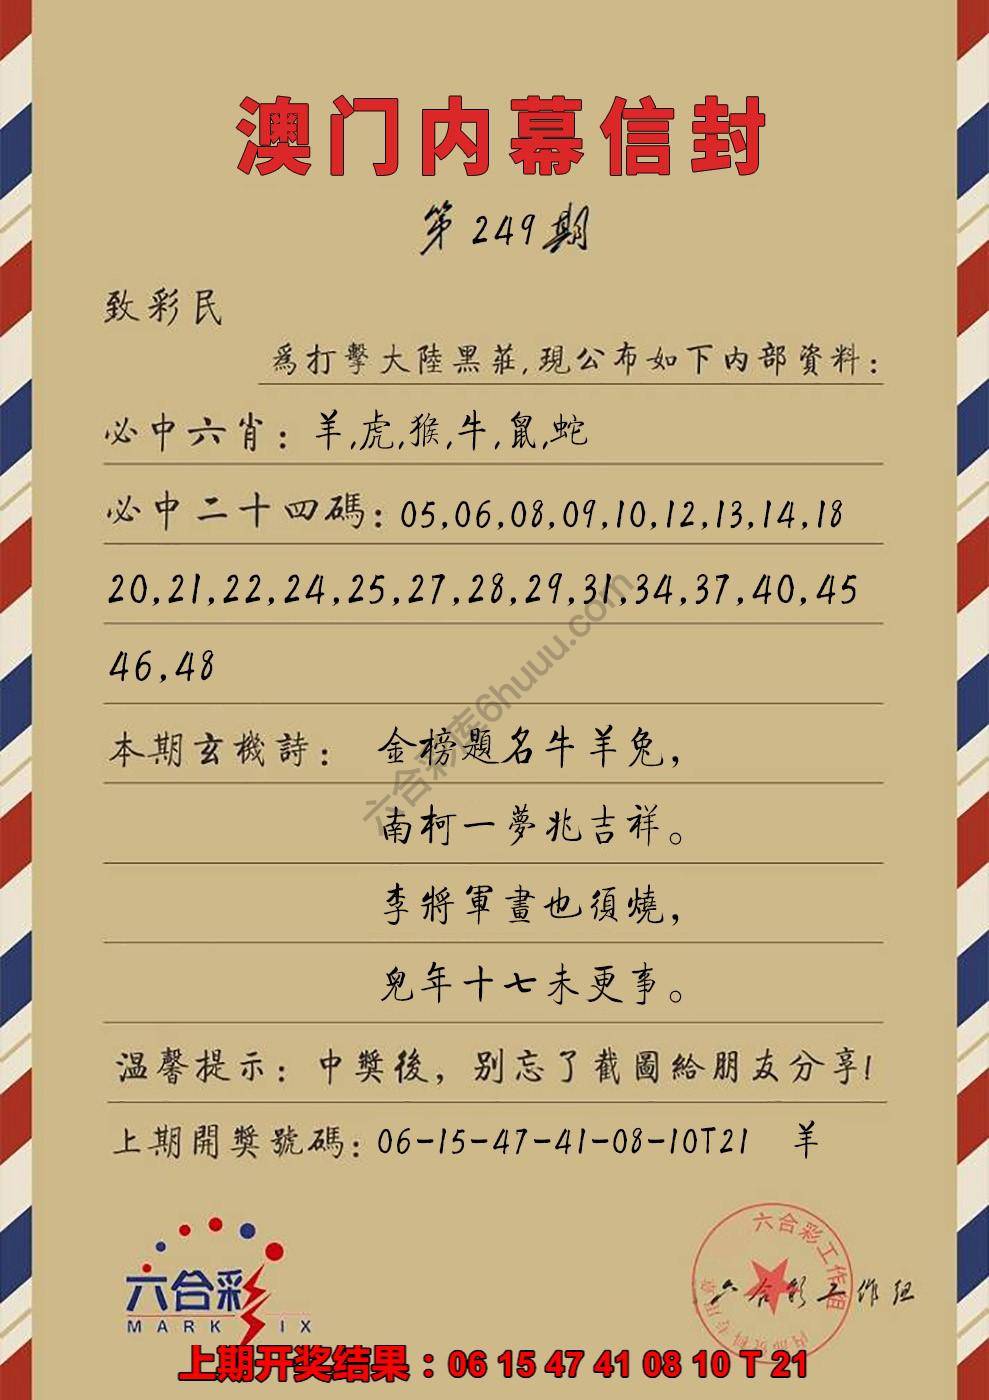 澳门内幕信封
第249期
致彩民
爲打擊大陸黑莊,現公布如下内部資料:
必中六肖: 羊,虎,猴,牛,鼠,蛇
必中二十四碼: 05,06,08,09,10,12,13,14,18
20,21,22,24,25,27,28,29,31,34,37,40,45
46,48
本期玄機詩: 金榜題名牛羊兔,
南柯一夢兆吉祥。
李將軍畫也須燒,
兒年十七未更事。
温馨提示: 中獎後, 别忘了截圖給朋友分享!
上期開獎號碼: 06-15-47-41-08-10T21 羊
六合彩库6huuu.com
六合彩
MARK SIX
六合彩工作组
六合彩工作组
上期开奖结果：06 15 47 41 08 10 T 21